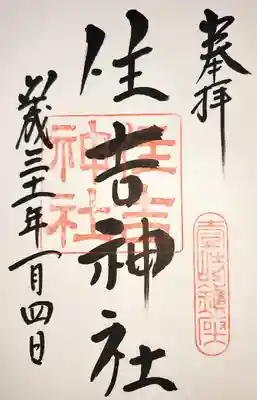 奉拝
住吉神社
平成三十一年一月四日
住吉神社